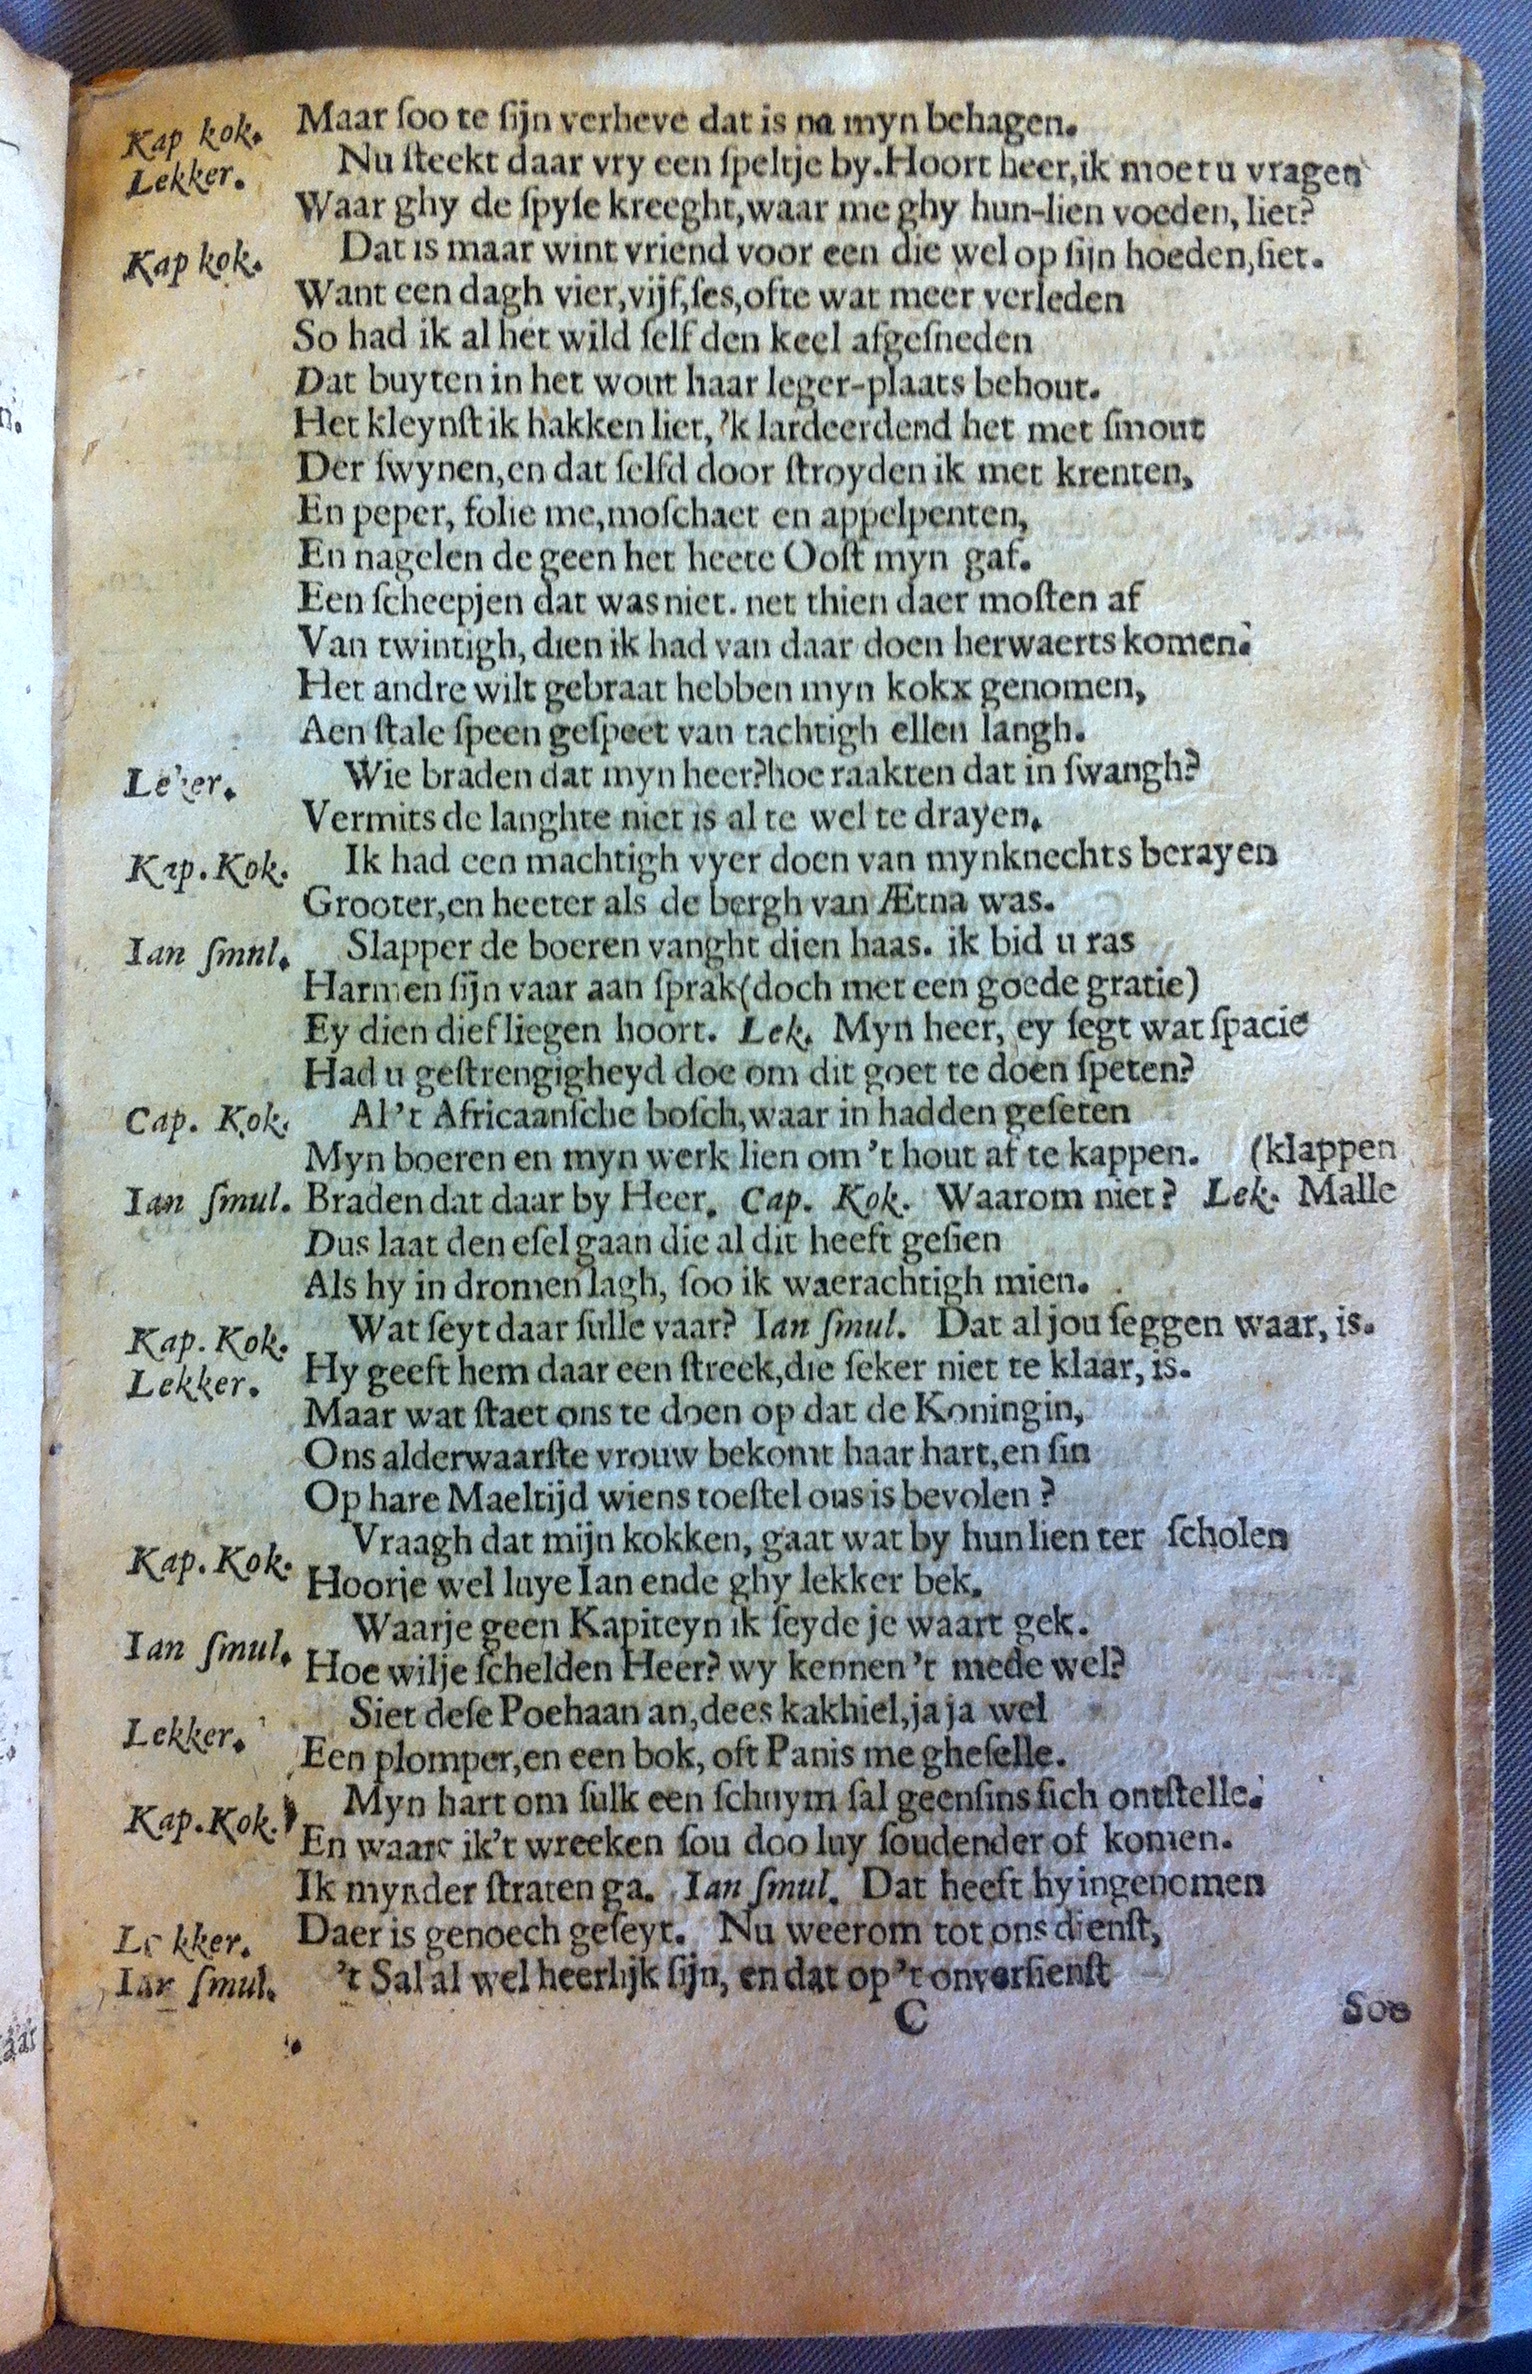 Kap kok. Maar ſoo te ſijn verheve dat is na myn behagen.
Lekker. Nu ſteekt daar vry een ſpeltje by. Hoort heer, ik moet u vragen
Waar ghy de ſpyſe kreeght, waar me ghy hun-lien voeden, liet?
Kap kok. Dat is maar wint vriend voor een die wel op ſijn hoeden, ſiet.
Want een dagh vier, vijf, ſes, ofte wat meer verleden
So had ik al het wild ſelf den keel afgeſneden
Dat buyten in het wout haar leger-plaats behout.
Het kleynſt ik hakken liet, 'k lardeerdend het met ſmout
Der ſwynen, en dat ſelfd door ſtroyden ik met krenten,
En peper, folie me, moſchaet en appelpenten,
En nagelen de geen het heete Ooſt myn gaf.
Een ſcheepjen dat was niet. net thien daer moſten af
Van twintigh, dien ik had van daar doen herwaerts komen.
Het andre wilt gebraat hebben myn kokx genomen,
Aen ſtale ſpeen geſpeet van tachtigh ellen langh.
Le er. Wie braden dat myn heer? hoe raakten dat in ſwangh?
Vermits de langhte niet is al te wel te drayen.
Kap. Kok. Ik had een machtigh vyer doen van mynknechts berayen
Grooter, en heeter als de bergh van Ætna was.
Ian ſmul. Slapper de boeren vanght dien haas. ik bid u ras
Harmen ſijn vaar aan ſprak (doch met een goede gratie)
Ey dien dief liegen hoort. Lek. Myn heer, ey ſegt wat ſpacie
Had u geſtrengigheyd doe om dit goet te doen ſpeten?
Cap. Kok. Al 't Africaanſche boſch, waar in hadden geſeten
Myn boeren en myn werk lien om 't hout af te kappen. (klappen
Ian ſmul. Braden dat daar by Heer. Cap. Kok. Waarom niet? Lek. Malle
Dus laat den eſel gaan die al dit heeft geſien
Als hy in dromen lagh, ſoo ik waerachtigh mien.
Kap. Kok. Wat ſeyt daar ſulle vaar? Ian ſmul. Dat al jou ſeggen waar, is.
Lekker. Hy geeft hem daar een ſtreek, die ſeker niet te klaar, is.
Maar wat ſtaet ons te doen op dat de Koningin,
Ons alderwaarſte vrouw bekomt haar hart, en ſin
Op hare Maeltijd wiens toeſtel ous is bevolen?
Kap. Kok. Vraagh dat mijn kokken, gaat wat by hun lien ter ſcholen
Hoorje wel luye Ian ende ghy lekker bek.
Ian ſmul. Waarje geen Kapiteyn ik ſeyde je waart gek.
Hoe wilje ſchelden Heer? wy kennen 't mede wel?
Lekker. Siet deſe Poehaan an, dees kakhiel, ja ja wel
Een plomper, en een bok, oft Panis me gheſelle.
Kap. Kok. Myn hart om ſulk een ſchuym ſal geenſins ſich ontſtelle.
En waare ik't wreeken ſou doo luy ſoudender of komen.
Ik mynder ſtraten ga. Ian ſmul. Dat heeft hy ingenomen
Lekker. Daer is genoech geſeyt. Nu weerom tot ons dienſt,
Ian ſmul. 't Sal al wel heerlijk ſijn, en dat op 't onverſienſt
C Soo